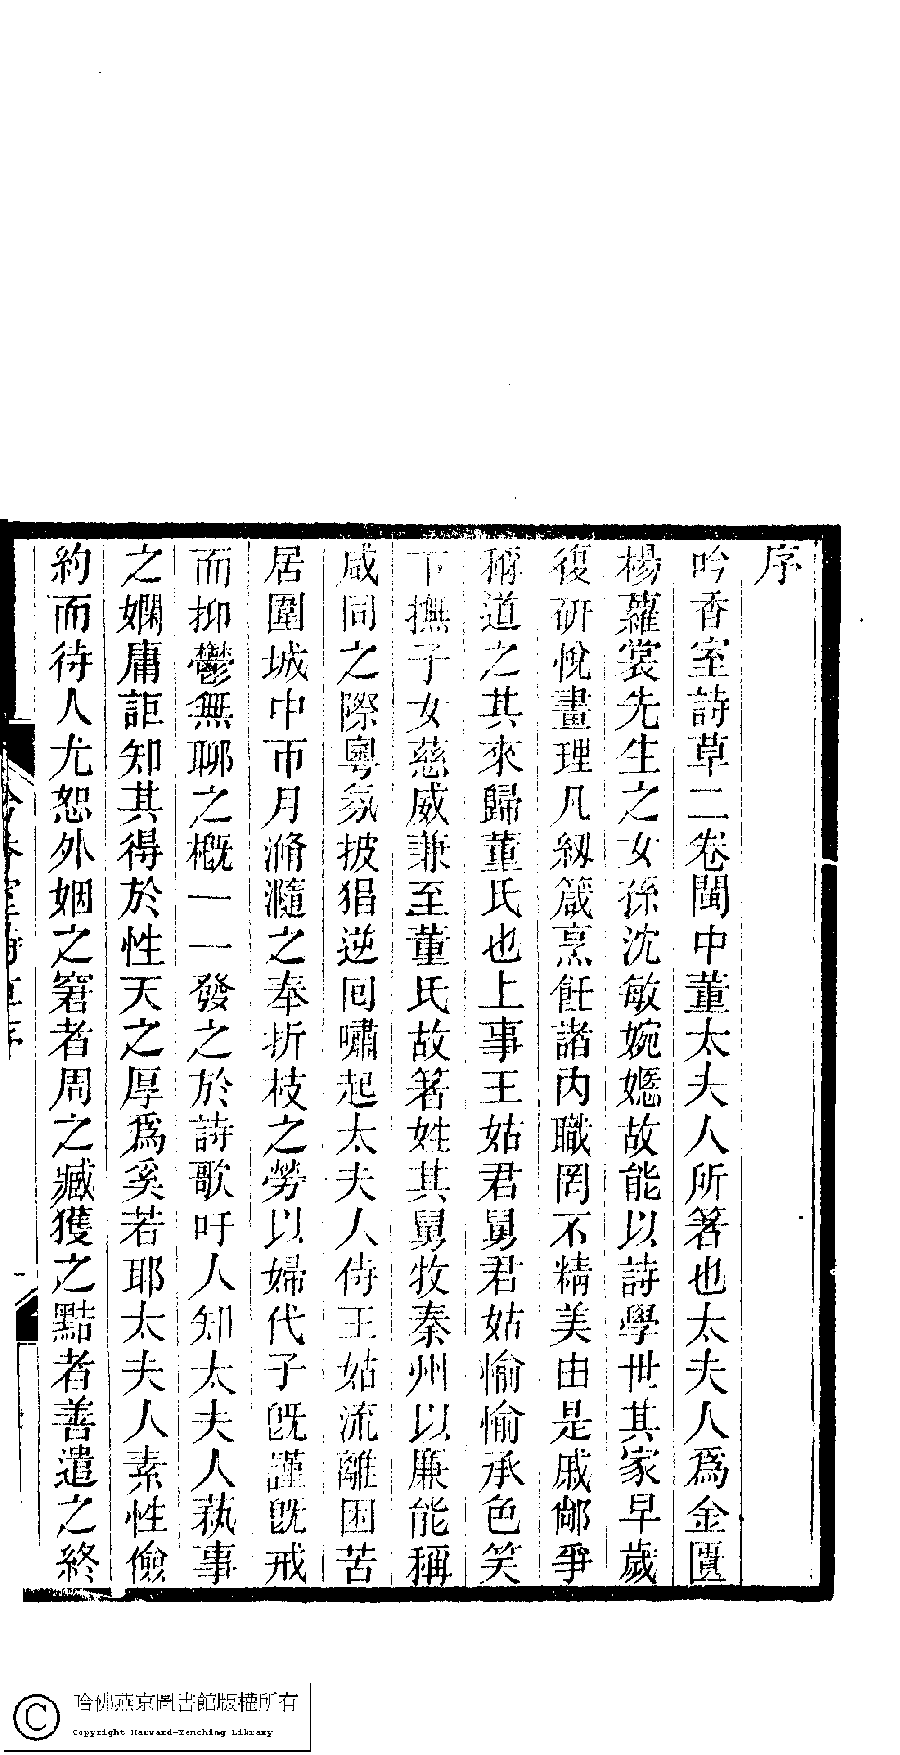 序
吟香室詩草二卷閩中董太夫人所箸也太夫人爲金匱
楊蘿裳先生之女孫沈敏婉嫕故能以詩學世其家早歲
復研悅畫理凡紉箴烹飪諸內職罔不精美由是戚鄰爭
稱道之其來歸董氏也上事王姑君舅君姑愉愉承色笑
下撫子女慈威兼至董氏故箸姓其舅牧秦州以廉能稱
咸同之際粵氛披猖逆回嘯起太夫人侍王姑流離困苦
居圍城中帀月滫瀡之奉折枝之勞以婦代子旣謹旣戒
而抑鬱無聊之槪一一發之於詩歌吁人知太夫人執事
之嫻庸詎知其得於性天之厚爲奚若耶太夫人素性儉
約而待人尤恕外姻之窘者周之臧獲之黠者善遣之終
吟香室詩草序
哈佛燕京圖書館版權所有
Copyright Harvard-Yenching Library